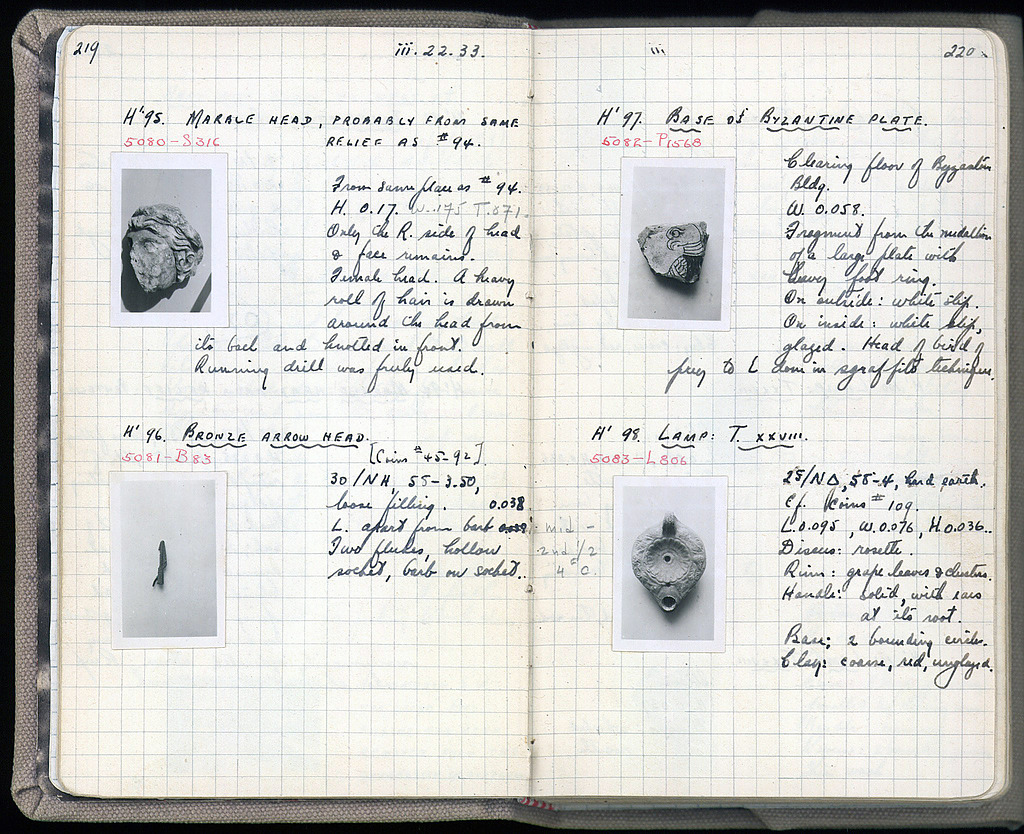 219
iii. 22. 33.
H' 95. MARBLE HEAD, PROBABLY FROM SAME
5080-S316
RELIEF AS #94.
From same place as #94.
H. 0.17. W. .175 T. .071.
Only the R. side of head
& face remains.
Female head. A heavy
roll of hair is drawn
around the head from
its back and knotted in front.
Running drill was freely used.
H' 96. BRONZE ARROW HEAD.
5081-B83
[Coins #45-92].
30/NH, 55-3.50,
loose filling. 0.038
L. apart from barb
Two flukes, hollow
socket, barb on socket.
mid-
2nd 1/2
4th C.
iii
220
H' 97. BASE OF BYZANTINE PLATE.
5082-P1568
Clearing floor of Byzantine
Bldg.
W. 0.058.
Fragment from the medallion
of a large plate with
heavy foot ring.
On outside: white slip.
On inside: white slip,
glazed. Head of bird of
prey to L done in sgraffito technique.
H' 98. LAMP: T. XXVIII.
5083-L806
25/NΔ, 55-4, hard earth.
Cf. Coins #109.
L. 0.095, W. 0.076, H 0.036.
Discus: rosette.
Rim: grape leaves & clusters.
Handle: solid, with ears
at its root.
Base: 2 bounding circles.
Clay: coarse, red, unglazed.